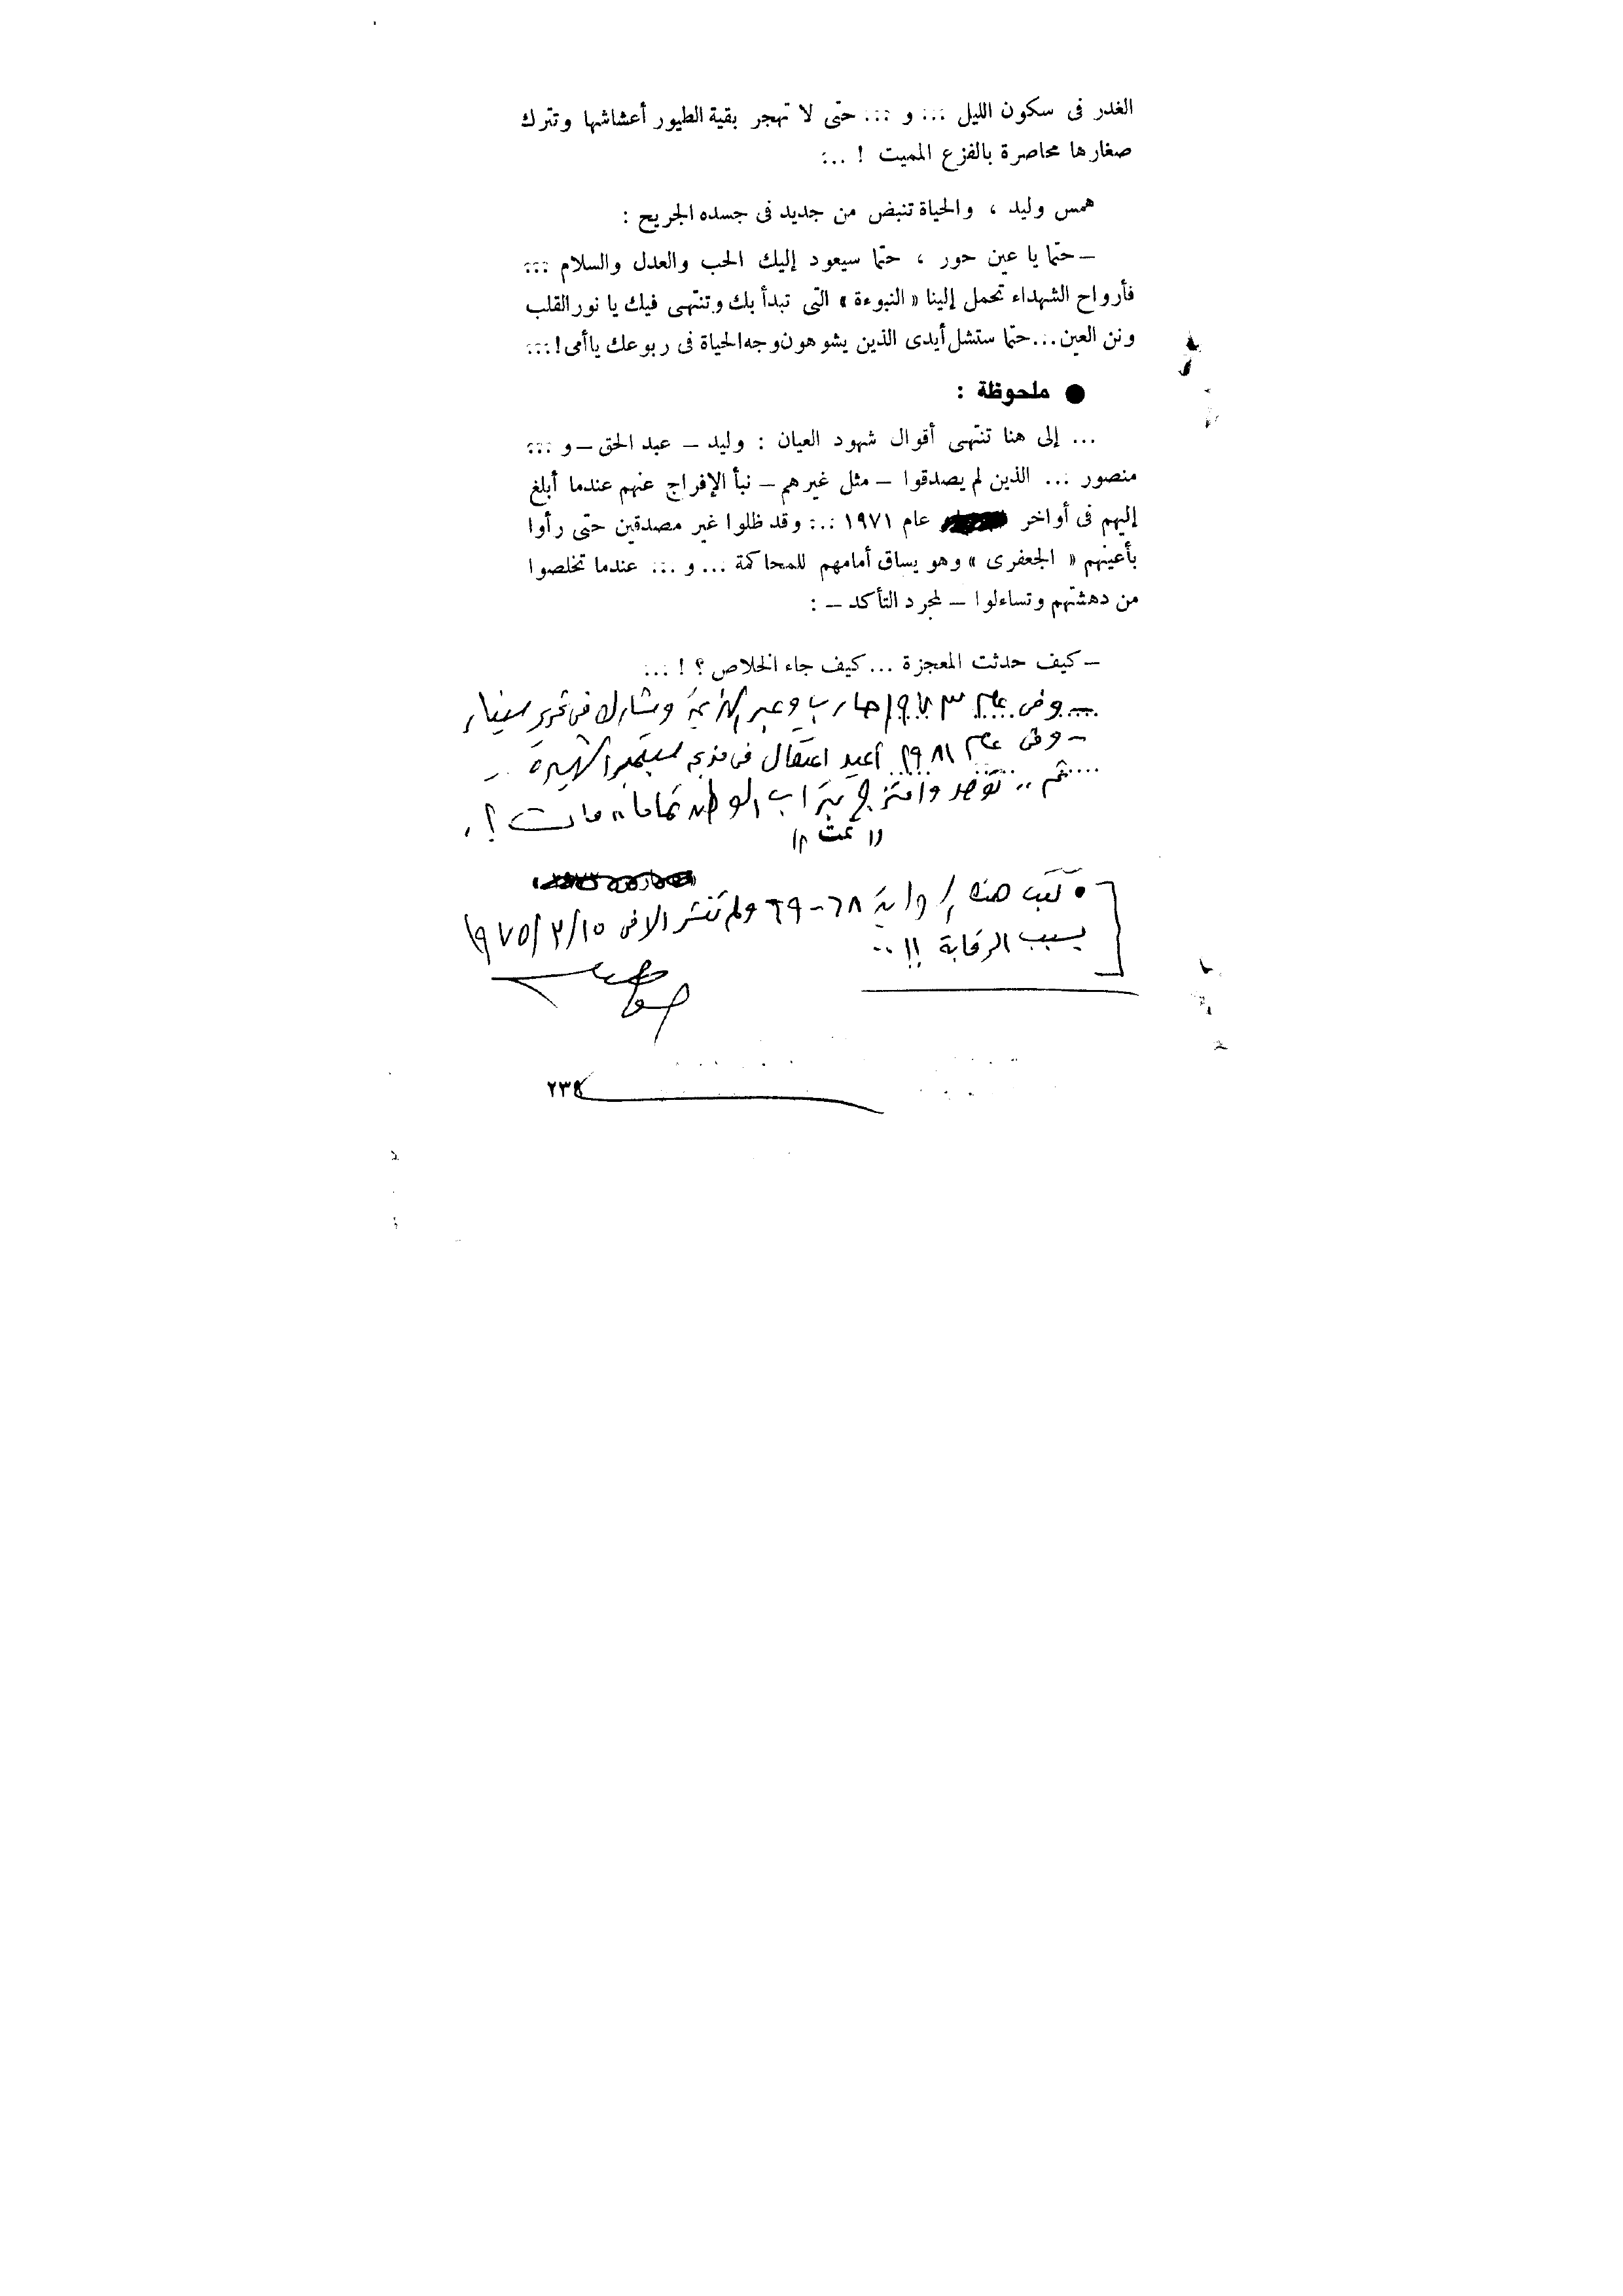 الغدر فى سكون الليل ... و ... حتى لا تهجر بقية الطيور أعشاشها وتترك
صغارها محاصرة بالفزع المميت ! ...
همس وليد ، والحياة تنبض من جديد فى جسده الجريح :
– حتما يا عين حور ، حتما سيعود إليك الحب والعدل والسلام ...
فأرواح الشهداء تحمل إلينا « النبوءة » التى تبدأ بك وتنتهى فيك يا نور القلب
ونن العين ... حتما ستشل أيدى الذين يشوهون وجه الحياة فى ربوعك يا أمى ! ...
● ملحوظة :
... إلى هنا تنتهى أقوال شهود العيان : وليد – عبد الحق – و ...
منصور ... الذين لم يصدقوا – مثل غيرهم – نبأ الإفراج عنهم عندما أبلغ
إليهم فى أواخر عام ١٩٧١ ... وقد ظلوا غير مصدقين حتى رأوا
بأعينهم « الجعفرى » وهو يساق أمامهم للمحاكمة ... و ... عندما تخلصوا
من دهشتهم وتساءلوا – لمجرد التأكد – :
– كيف حدثت المعجزة ... كيف جاء الخلاص ؟ ! ...
– وفى عام ١٩٧٣ حارب وعبر الهزيمة وشارك فى تحرير سيناء
– وفى عام ١٩٨١ أعيد اعتقال فى سبتمبر الشهيرة ..
ثم .. توحد وامتزج بتراب الوطن تماما مات ؟ .
(( تمت ))
• كتبت هذه الرواية ٦٨ - ٦٩ ولم تنشر الا فى ١٩٧٥/٢/١٥
بسبب الرقابة !! ..
٢٣٨